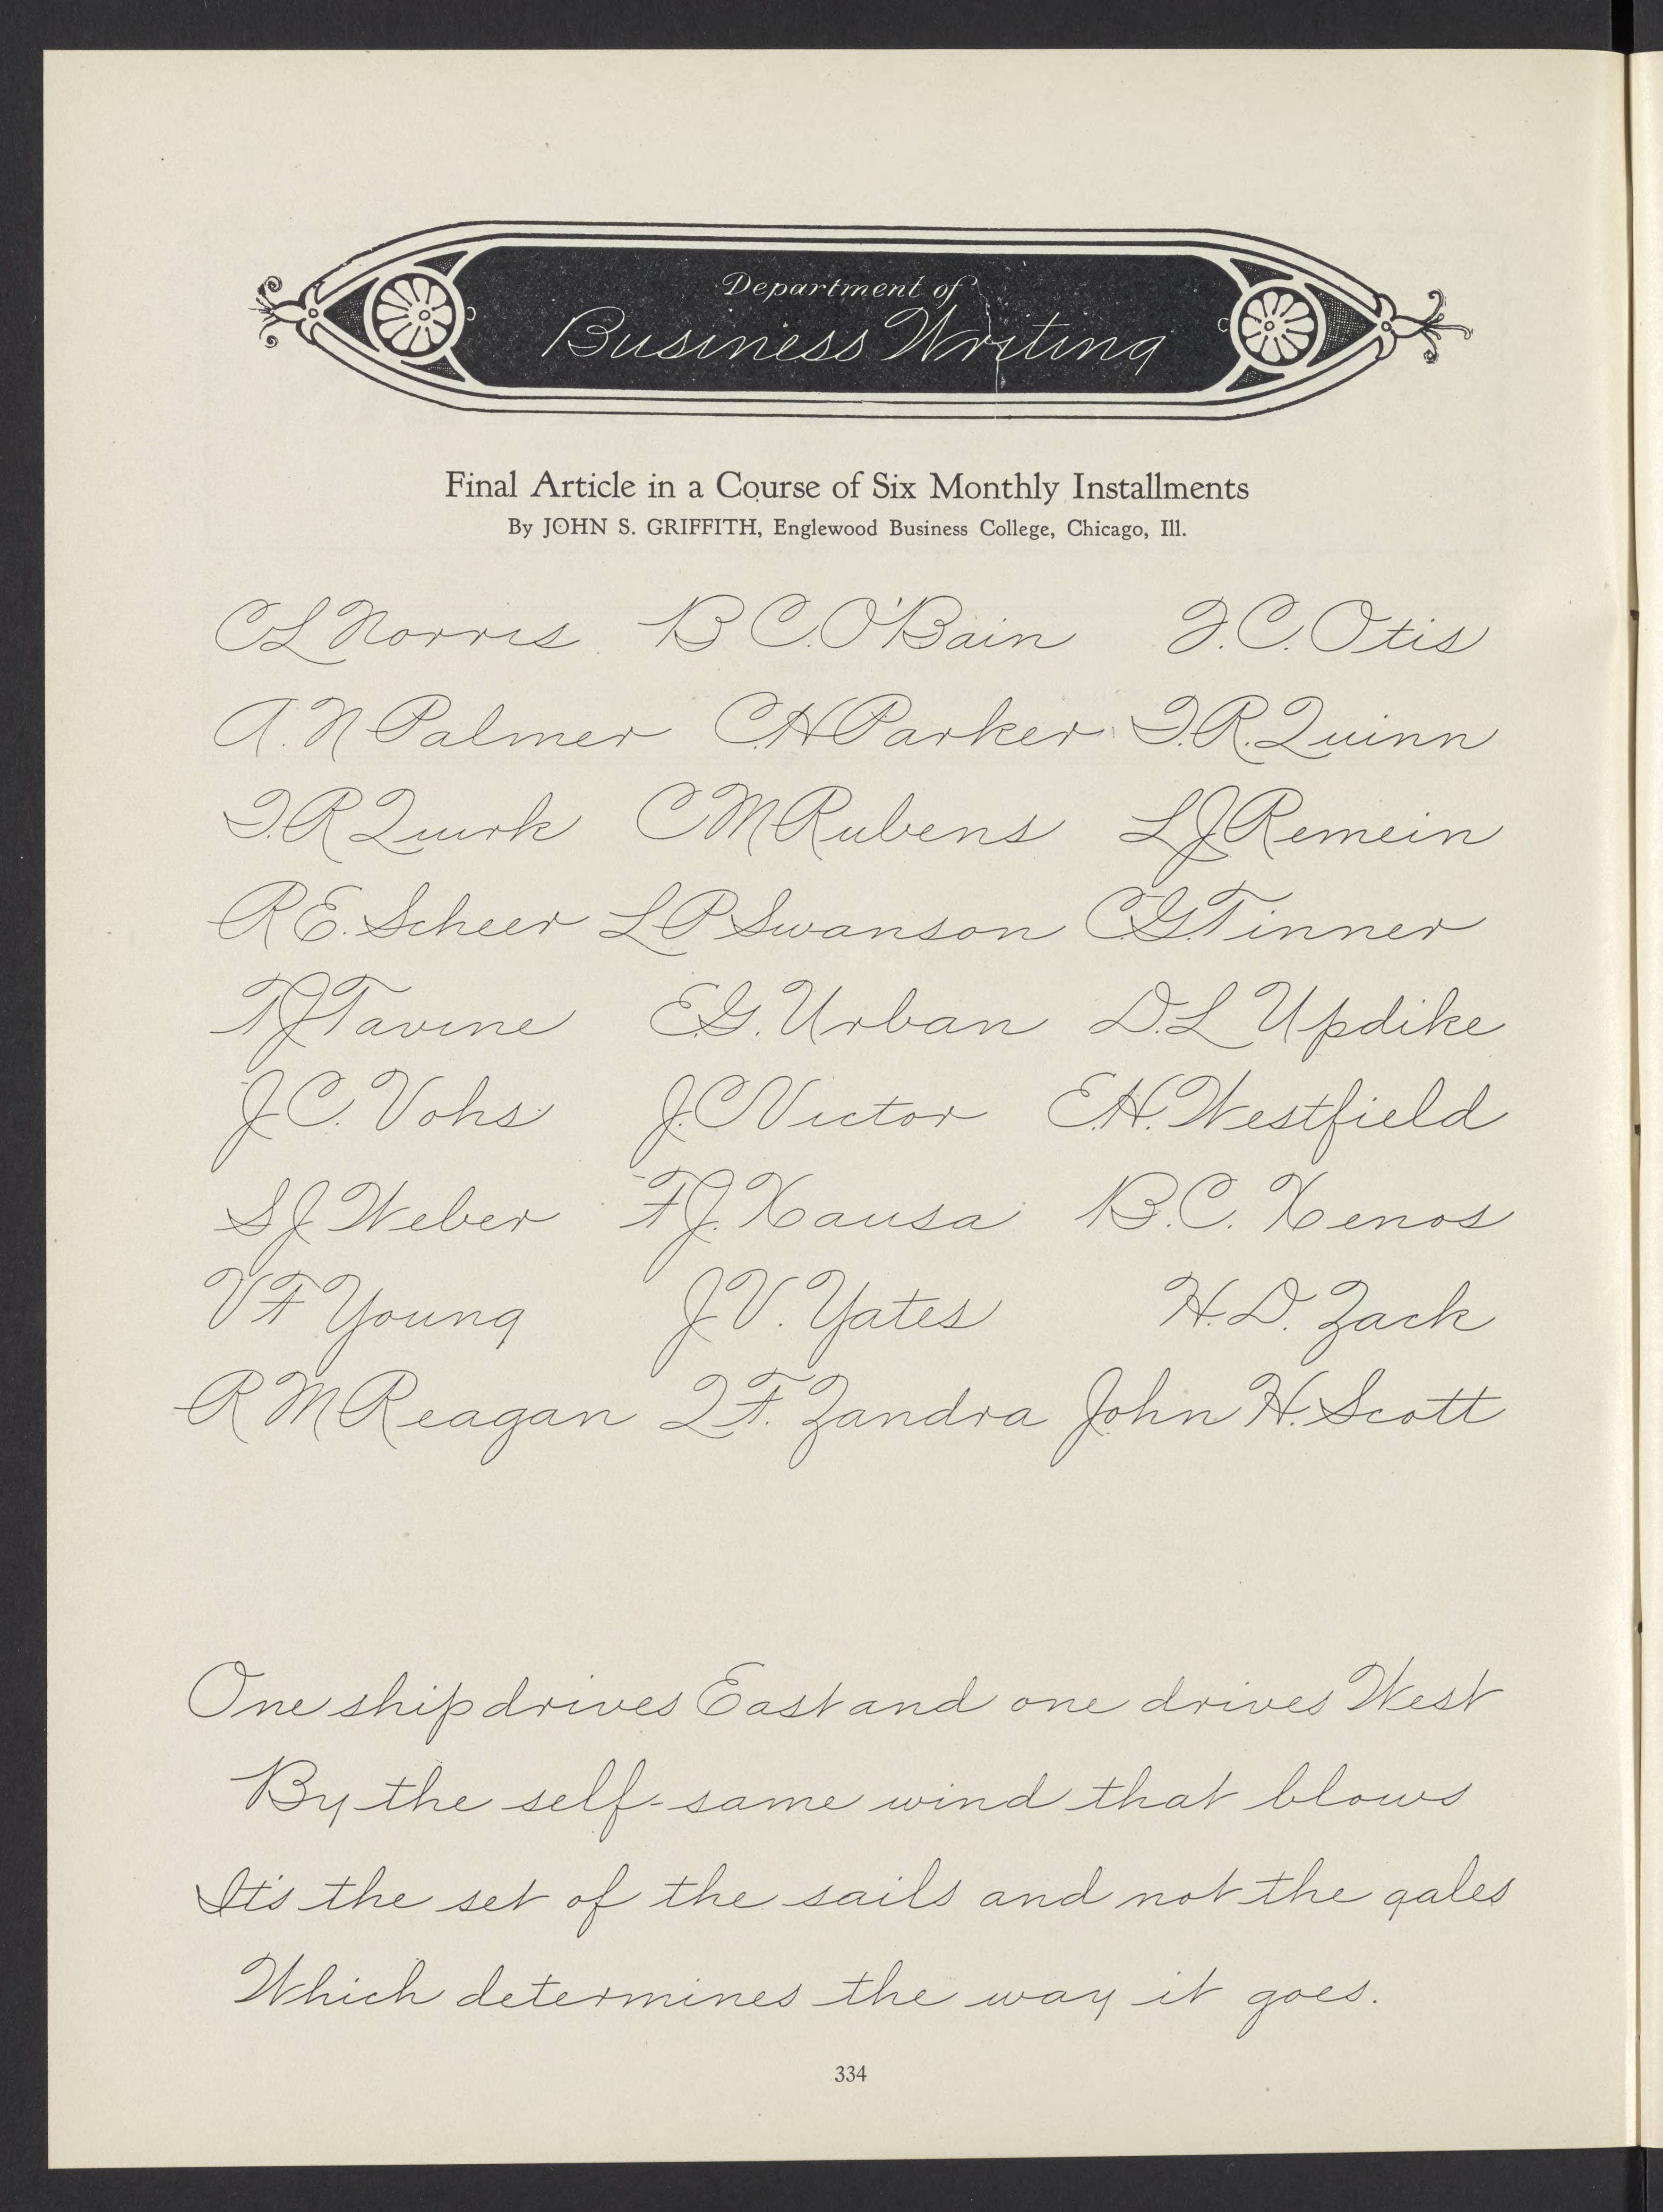 Department of
Business Writing
Final Article in a Course of Six Monthly Installments
By JOHN S. GRIFFITH, Englewood Business College, Chicago, Ill.
C L Norris B C. O'Bain J. C. Otis
A. N Palmer C. H Parker I. R. Quinn
I. R Quirk C M Rubens L J Remein
R E. Scheer L P Swanson C. G. Tinner
T J Tavine E. G. Urban D. L Updike
J C. Vohs J. C Victor E. H. Westfield
S J Weber F J. Xausa B. C. Xenos
V F Young J V. Yates H. D. Zack
R M Reagan Q F. Zandra John H. Scott
One ship drives East and one drives West
By the self-same wind that blows
It's the set of the sails and not the gales
Which determines the way it goes.
334